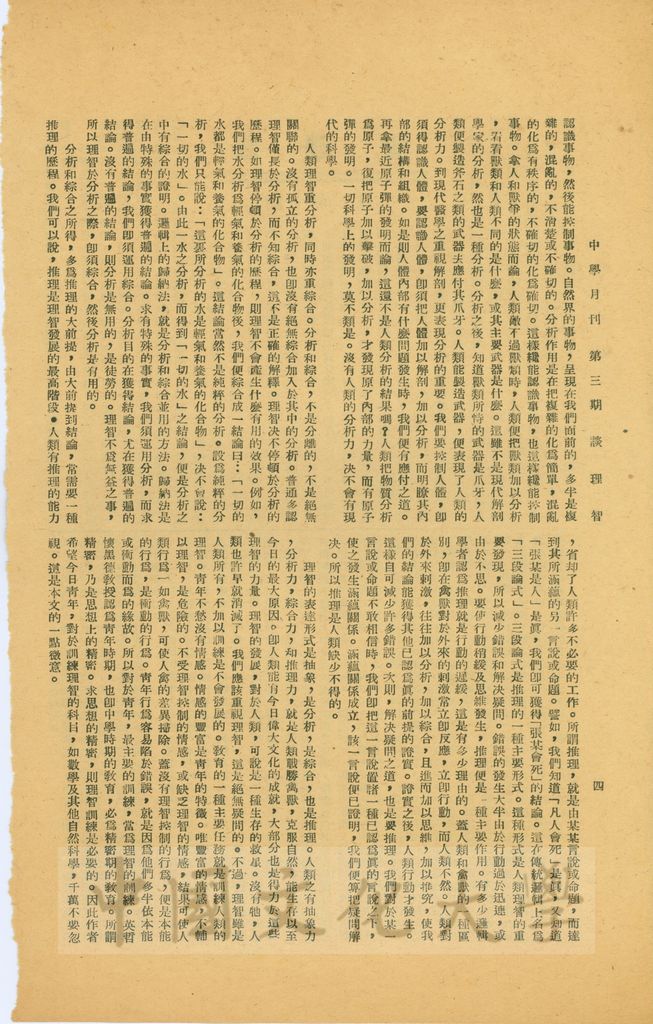 中學月刊　第三期　談理智
四
認識事物，然後能控制事物。自然界的事物，呈現在我們面前的，多半是複
雜的，混亂的，不清楚或不確切的。分析作用是在把複雜的化為簡單，混亂
的化為有秩序的，不確切的化為確切。這樣纔能認識事物，也這樣纔能控制
事物。拿人和獸帶的狀態而論，人類敵不過獸類時，人類便把獸類加以分析
，看看獸類和人類不同的是什麼，或其主要武器是什麼。這雖不是現代解剖
學家的分析，然也是一種分析。分析之後，知道獸類所恃的武器是爪牙，人
類便製造斧石之類的武器去應付其爪牙。人類能製造武器，便表現了人類的
分析力。到現代醫學之重視解剖，更表現分析的重要。我們要控制人體，即
須得認識人體，要認識人體，即須把人體加以解剖，加以分析，而明瞭其內
部的結構和組織。如是則人體內部有什麼問題發生時，我們便有應付之道。
再拿最近原子彈的發明而論，這還不是人類分析的結果嗎？人類把物質分析
為原子，復把原子加以擊破，加以分析，才發現原子內部的力量，而有原子
彈的發明。一切科學上的發明，莫不類是。沒有人類的分析力，決不會有現
代的科學。
人類理智重分析，同時亦重綜合。分析和綜合，不是分離的，不是絕無
關聯的。沒有孤立的分析，也即沒有絕無綜合加入於其中的分析。普通多認
理智僅長於分析，而不知綜合，這不是正確的解釋。理智決不停頓於分析的
歷程。如理智停頓於分析的歷程，則理智不會產生什麼有用的效果。例如，
我們把水分析為輕氣和養氣的化合物後，我們便綜合成一結論曰：「一切的
水都是輕氣和養氣的化合物」。這結論當然不是純粹的分析。設為純粹的分
析，我們只能說：「這要所分析的水是輕氣和養氣的化合物」，決不可說：
「一切的水」。由此一水之分析，而得到「一切的水」之結論，便是分析之
中有綜合的證明。邏輯上的歸納法，就是分析和綜合並用的方法。歸納法是
在由特殊的事實獲得普遍的結論。求有特殊的事實，我們須運用分析，而求
得普遍的結論，我們即須運用綜合。分析目的在獲得結論，尤在獲得普遍的
結論。沒有普遍的結論，則分析是無用的，是徒勞的。理智不為無益之事，
所以理智於分析之際，即須綜合，然後分析是有用的。
分析和綜合之所得，多為推理的大前提，由大前提到結論，常需要一種
推理的歷程。我們可以說，推理是理智發展的最高階段。人類有推理的能力
，省却了人類許多不必要的工作。所謂推理，就是由某某言說或命題，而達
到其所涵蘊的另一言說或命題。譬如，我們知道「凡人會死」是眞，又知道
「張某是人」是眞，我們即可獲得「張某會死」的結論。這在傳統邏輯上名為
「三段論式」。三段論式是推理的一種主要形式。這種形式是人類理智的重
要發現，所以減少錯誤和解決疑問。錯誤的發生大半由於行動過於迅速，或
由於不思。要使行動稍緩及思維發生，推理便是一種主要作用。有多少邏輯
學者認為推理就是行動的遲緩，這是有多少理由的。蓋人類和禽獸的一種區
別，即在禽獸對於外來的刺激常立即反應，立即行動，而人類不然。人類對
於外來刺激，往往加以分析，加以綜合，且進而加以思維，加以推究，使我
們的結論能獲得其他已認為眞的前提的證實。證實之後，人類行動才發生。
這樣自可減少許多錯誤。次則，解決疑問之道，也是要推理。我們對於某一
言說或命題不敢相信時，我們即把這一言說置諸一種已認為眞的言說之下，
使之發生涵蘊關係。涵蘊關係成立，該一言說便已證明，我們便算把疑問解
決。所以推理是人類缺少不得的。
理智的表達形式是抽象，是分析，是綜合，也是推理。人類之有抽象力
，分析力，綜合力，和推理力，就是人類戰勝禽獸，克服自然，能生存以至
今日的最大原因。即人類能有今日偉大文化的成就，大部分也是得力於這些
理智的力量。理智的發展，對於人類，可說是一種生存的救星。沒有牠，人
類也許早就消滅了。我們應該重視理智，這是絕無疑問的。不過，理智雖是
人類所有，不加以訓練是不會發展的。教育的一種主要任務就是訓練人類的
理智。青年不愁沒有情感。情感的豐富是青年的特徵。唯豐富的情感，不輔
以理智，是危險的。不受理智控制的情感，或缺乏理智的情感，結果可使人
類行為一如禽獸，可使人禽的差異掃除。蓋沒有理智控制的行為，便是本能
的行為，是衝動的行為。青年行為容易陷於錯誤，就是因為他們多半依本能
或衝動而行為的緣故。所以對於青年，最主要的訓練，當為理智的訓練。英哲
懷黑德教授認為青年時期，也即中學時期的教育，必為精密期的教育。所謂
精密，乃是思想上的精密。求思想的精密，則理智訓練是必要的。因此作者
希望今日青年，對於訓練理智的科目，如數學及其他自然科學，千萬不要忽
視。這是本文的一點微意。